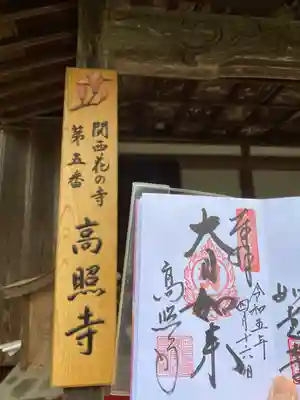 関西花の寺
第五番
高照寺
奉拝
令和五年
四月十六日
大日如来
高照寺